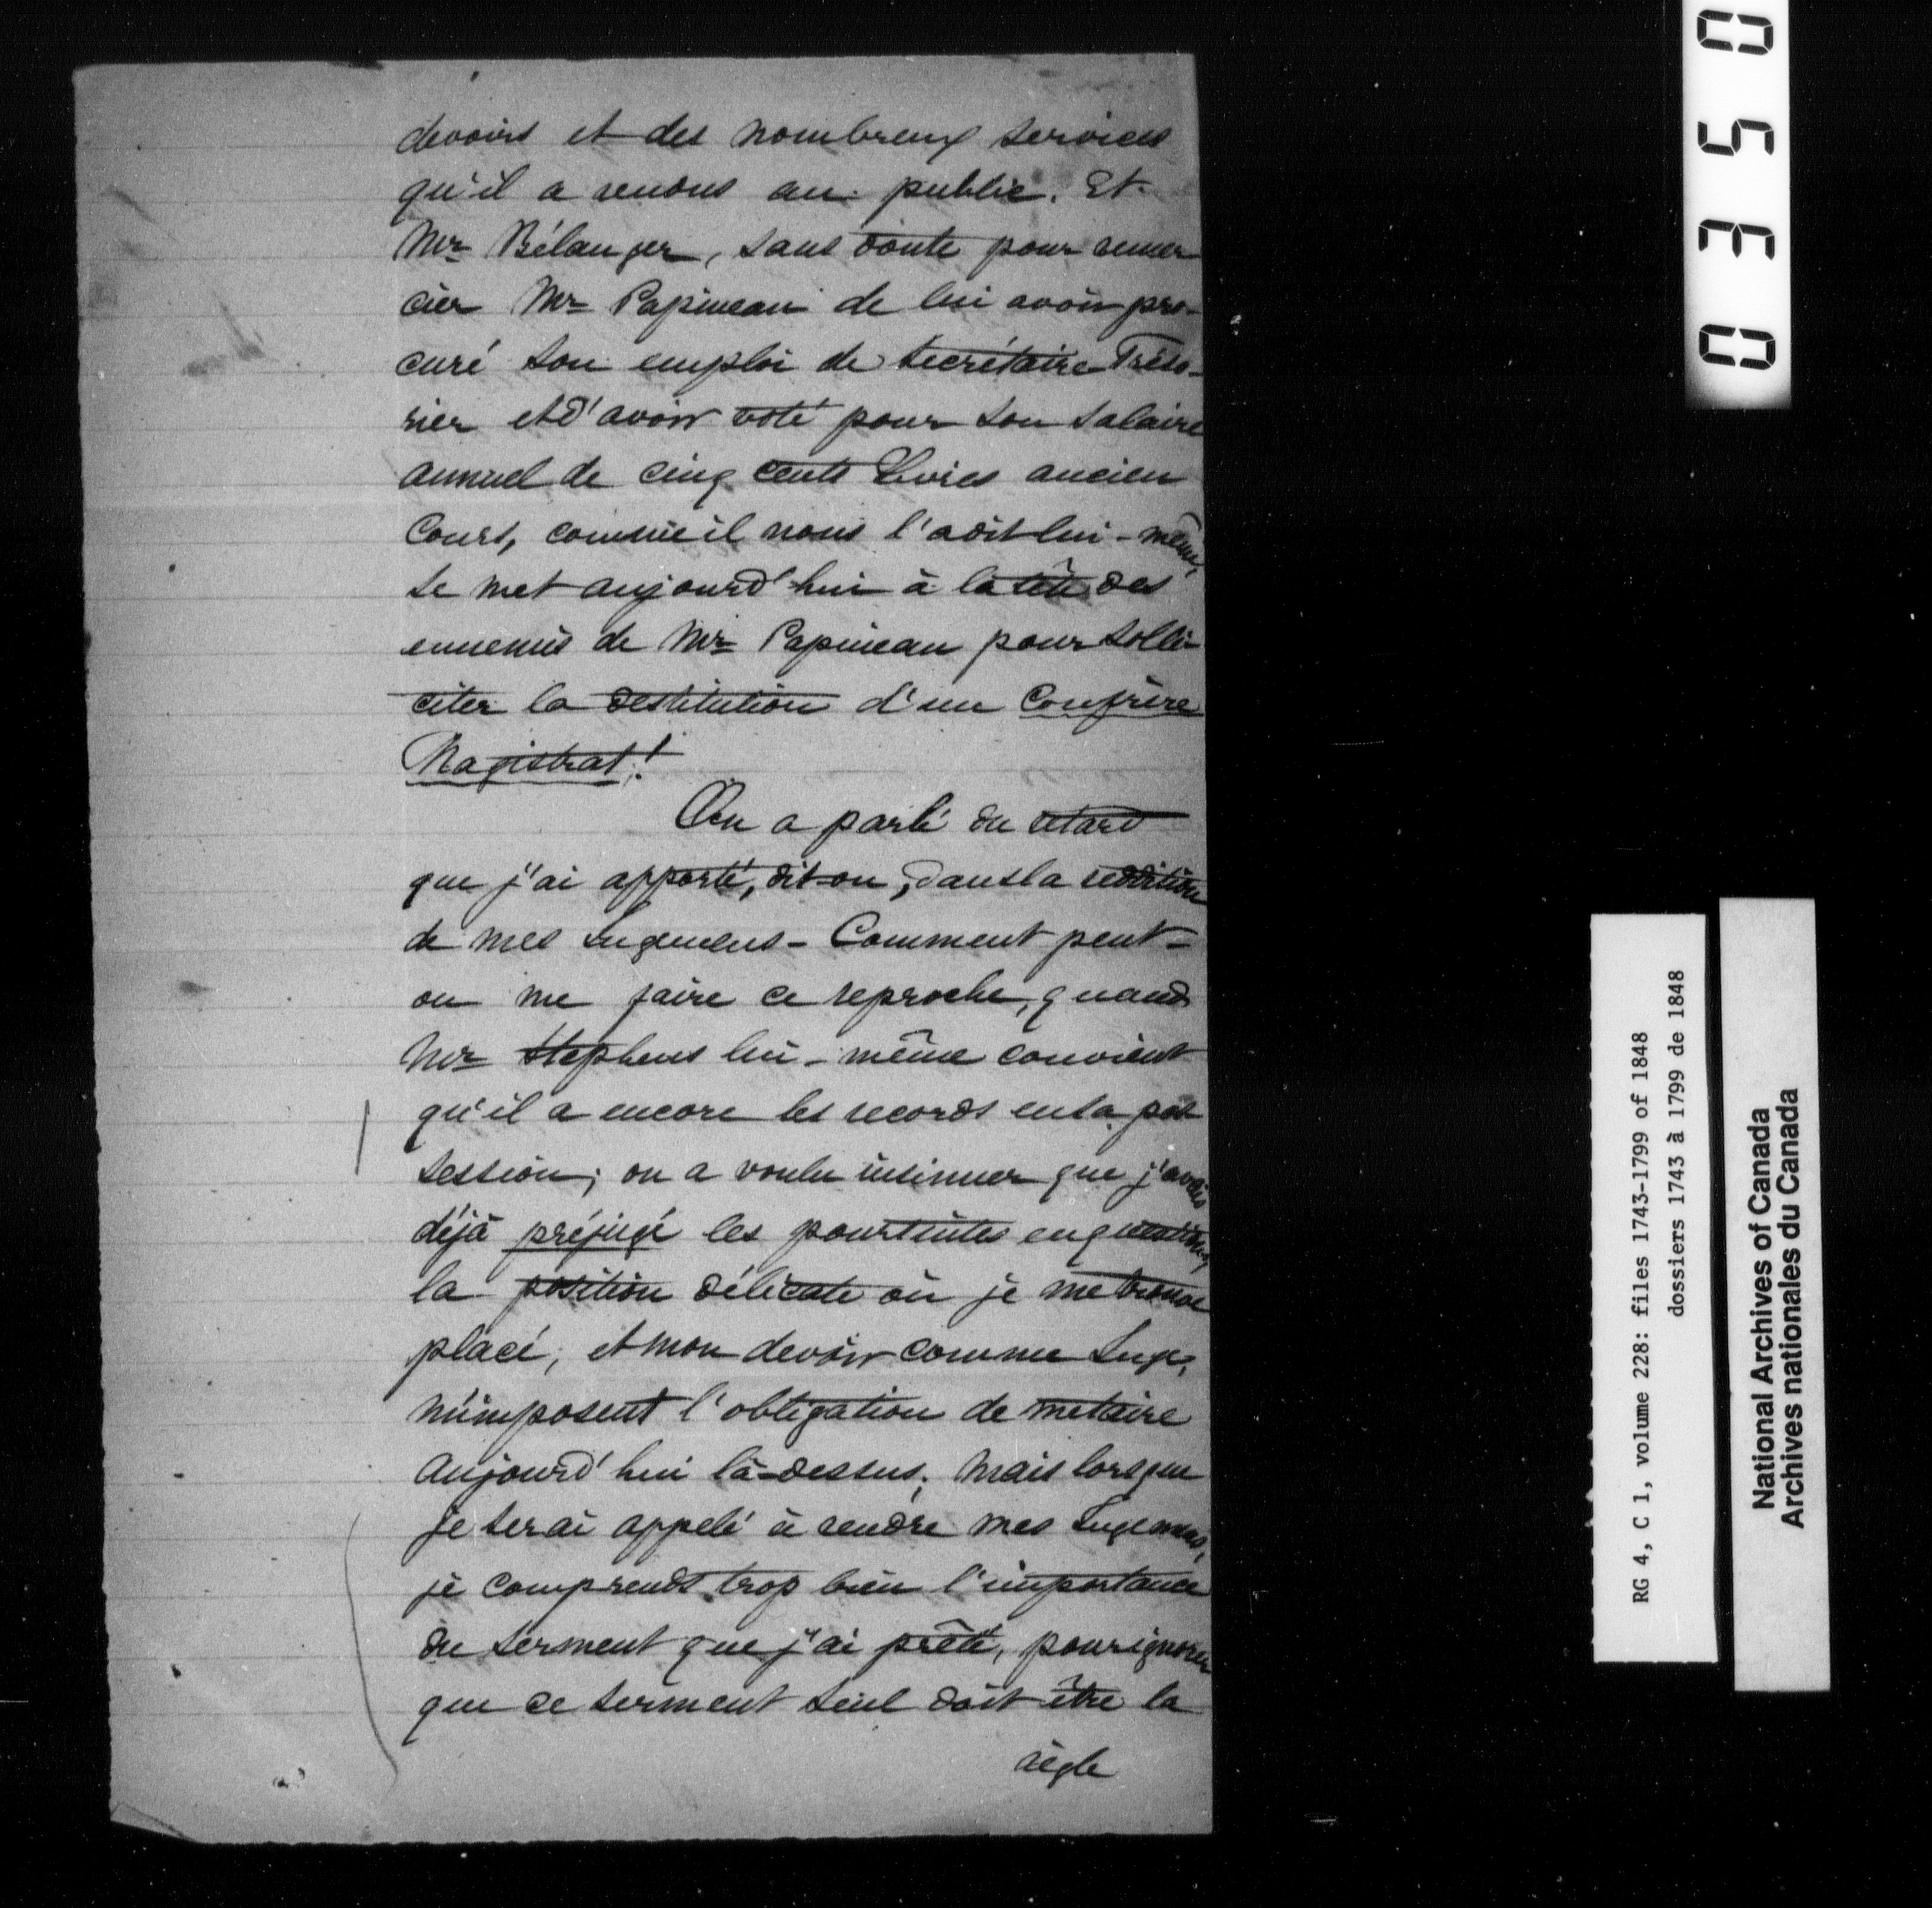 devoirs et des nombreux services
qu'il a rendus au public. Et
Mr Bélanger, sans doute pour remer
cier Mr Papineau de lui avoir pro-
curé son emploi de Secrétaire Tréso-
rier et d'avoir voté pour son salaire
annuel de cinq cents Livres ancien
Cours, comme il nous l'a dit lui-même,
se met aujourd'hui à la tête des
ennemis de Mr Papineau pour solli-
citer la destitution d'un Confrère
Magistrat!
On a parlé du retard
que j'ai apporté, dit-on, dans la reddition
de mes Jugemens - Comment peut-
on me faire ce reproche, quand
Mr Stephens lui-même convient
qu'il a encore les records en sa pos
session; on a voulu insinuer que j'avais
déjà préjugé les poursuites en question;
la position délicate où je me trouve
placé, et mon devoir comme Juge,
m'imposent l'obligation de me taire
aujourd'hui là-dessus. Mais lorsque
je serai appelé à rendre mes Jugemens,
je comprends trop bien l'importance
du serment que j'ai prêté, pour ignorer
que ce serment seul doit être la
règle
0350
RG 4, C 1, volume 228: files 1743-1799 of 1848
dossiers 1743 à 1799 de 1848
National Archives of Canada
Archives nationales du Canada